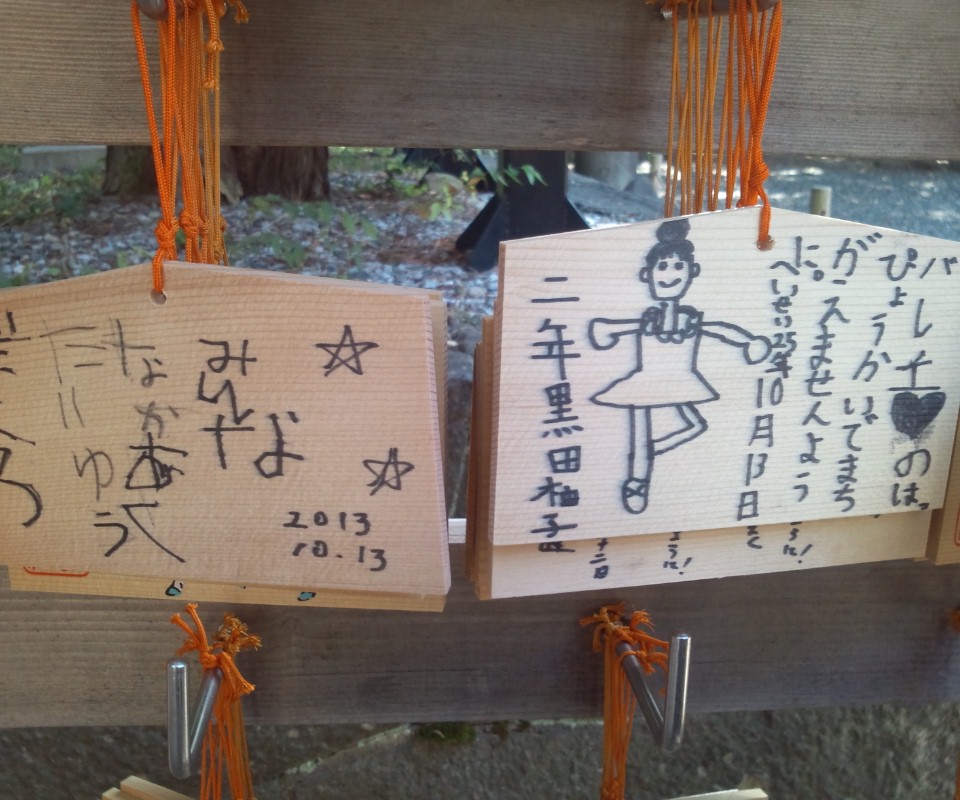 バレエ♥のはっ
ぴょうかいでまち
がえませんよう
に。
へいせい25年10月13日
二年黒田柚子
みんな
なかよく
ゆう
2013
10.13